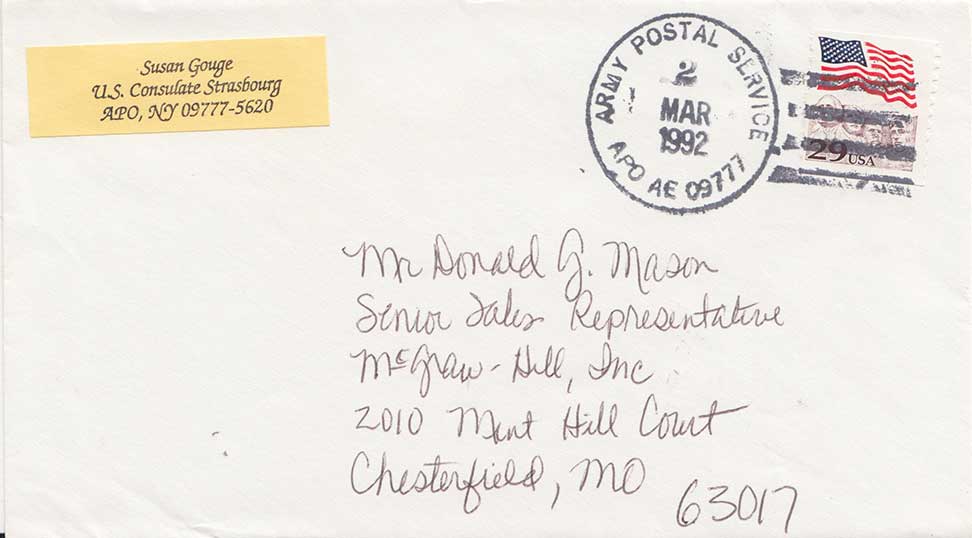 Susan Gouge
U.S. Consulate Strasbourg
APO, NY 09777-5620
ARMY POSTAL SERVICE
2
MAR
1992
APO AE 09777
29 USA
Mr Donald G. Mason
Senior Sales Representative
McGraw-Hill, Inc
2010 Mint Hill Court
Chesterfield, MO
63017